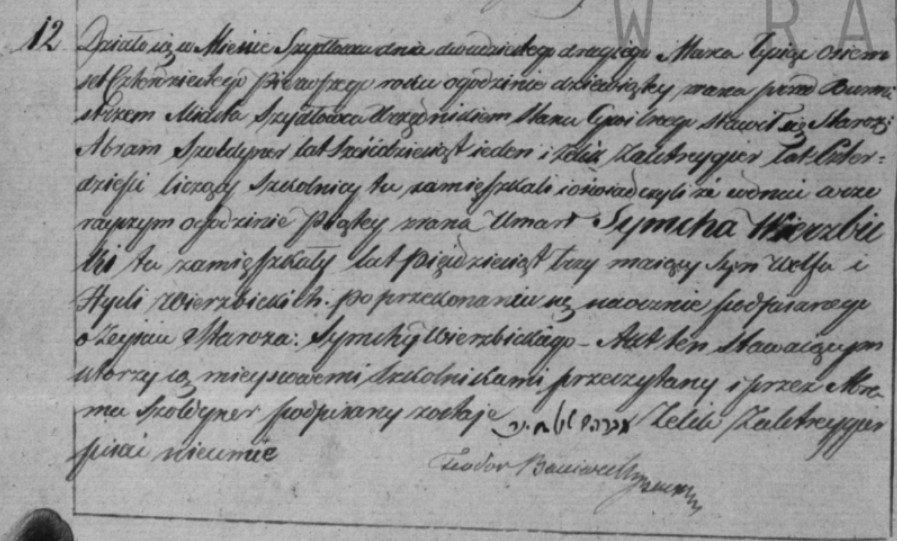 W R A
12 Działo się w Mieście Szydłowcu dnia dwudziestego drugiego Marca tysiąc osiem
set Czterdziestego pierwszego roku o godzinie dziewiątey zrana przed Burmi
strzem Miasta Szydłowca Urzędnikiem Stanu Cywilnego stawił się Staroz:
Abram Szpldyner lat sześćdziesiąt ieden i Zelik Zaletreygier lat Czter=
dzieści liczący Szkolnicy tu zamieszkali i oświadczyli że w dniu wczo
rayszym o godzinie piątey zrana Umarł Symcha Wierzbic
ki tu zamieszkały lat pięćdziesiąt trzy maiący Syn Wolfa i
Haydli Wierzbickich. po przekonaniu się naocznie podpisanego
o zeyściu Staroza: Symchy Wierzbickiego – Akt ten stawaiącym
utorzy są mieyscowemi szkolnikami przeczytany i przez Abra
ma Szpldyner podpisany zostaje אברהם Zelik Zaletreygier
pisać nieumie
Teodor